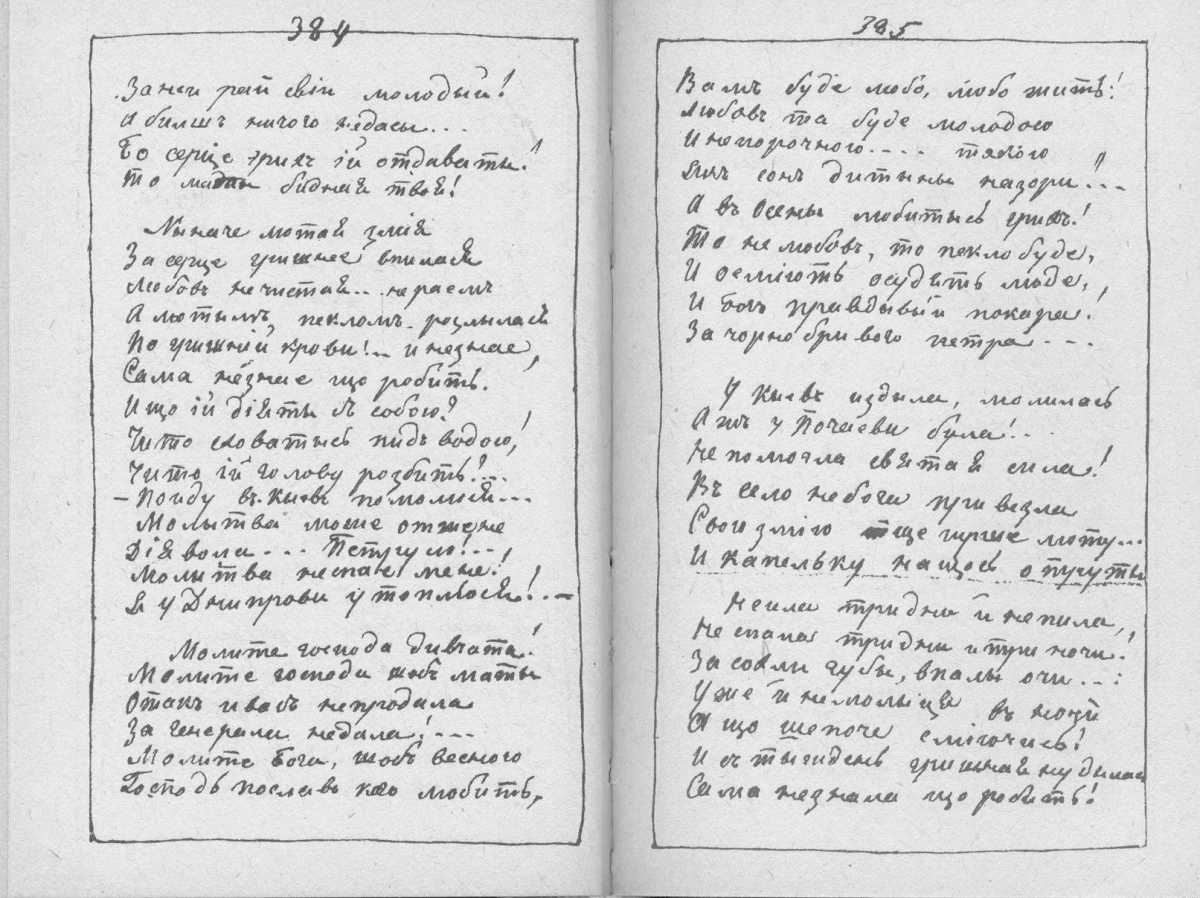 384
За неи рай свій молодый!
А билшъ ничого недасы...
Бо серце трихъ ій отдаваты!
То мады бидная твоя!
Ныначе лютая змія
За серце гришнее впилася
Любовъ нечистая... нераемъ
А лютымъ пекломъ розлылася
По гришній крови!.. и незнае,
Сама незнае що робить.
И що ій діяты съ собою?
Чито сховатысь пидъ водою,
Чито ій голову розбить?...
— Поиду въ Кыевъ помолюся...
Молытва може отжене
Діявола... Петрусю!...
Молитва неспасе мене!
Я у Днипрови утоплюся!.—
Молите господа дивчата!
Молите господа шобъ маты
Отакъ и васъ непродала
За генерала недала!...
Молите Бога, шобъ весною
Господь пославъ кого любить,
385
Вамъ буде любо, любо жить!
Любовъ та буде молодою
И непорочного.... тыхого
Якъ сонъ дитыны на зори!...
А въ осены любитысь грихъ!
То не любовъ, то пекло буде,
И осміють осудять люде,
И богъ правдывый покара!
За чорнобривого петра...
У Кыевъ издыла, молилась
Ажъ у Почаеви була!..
Непомогла святая сила!
Въ село небога привезла
Свою змію ще гирше люту...
И капельку нащось отруты
Неила тридни й непила,
Неспала тридни и три ночи!
Засохли губы, впалы очи...
Уже й немолыця въ ночи
А що шепоче сміючись!
И съ тыждень гришная нудылась
Сама незнала що робить!